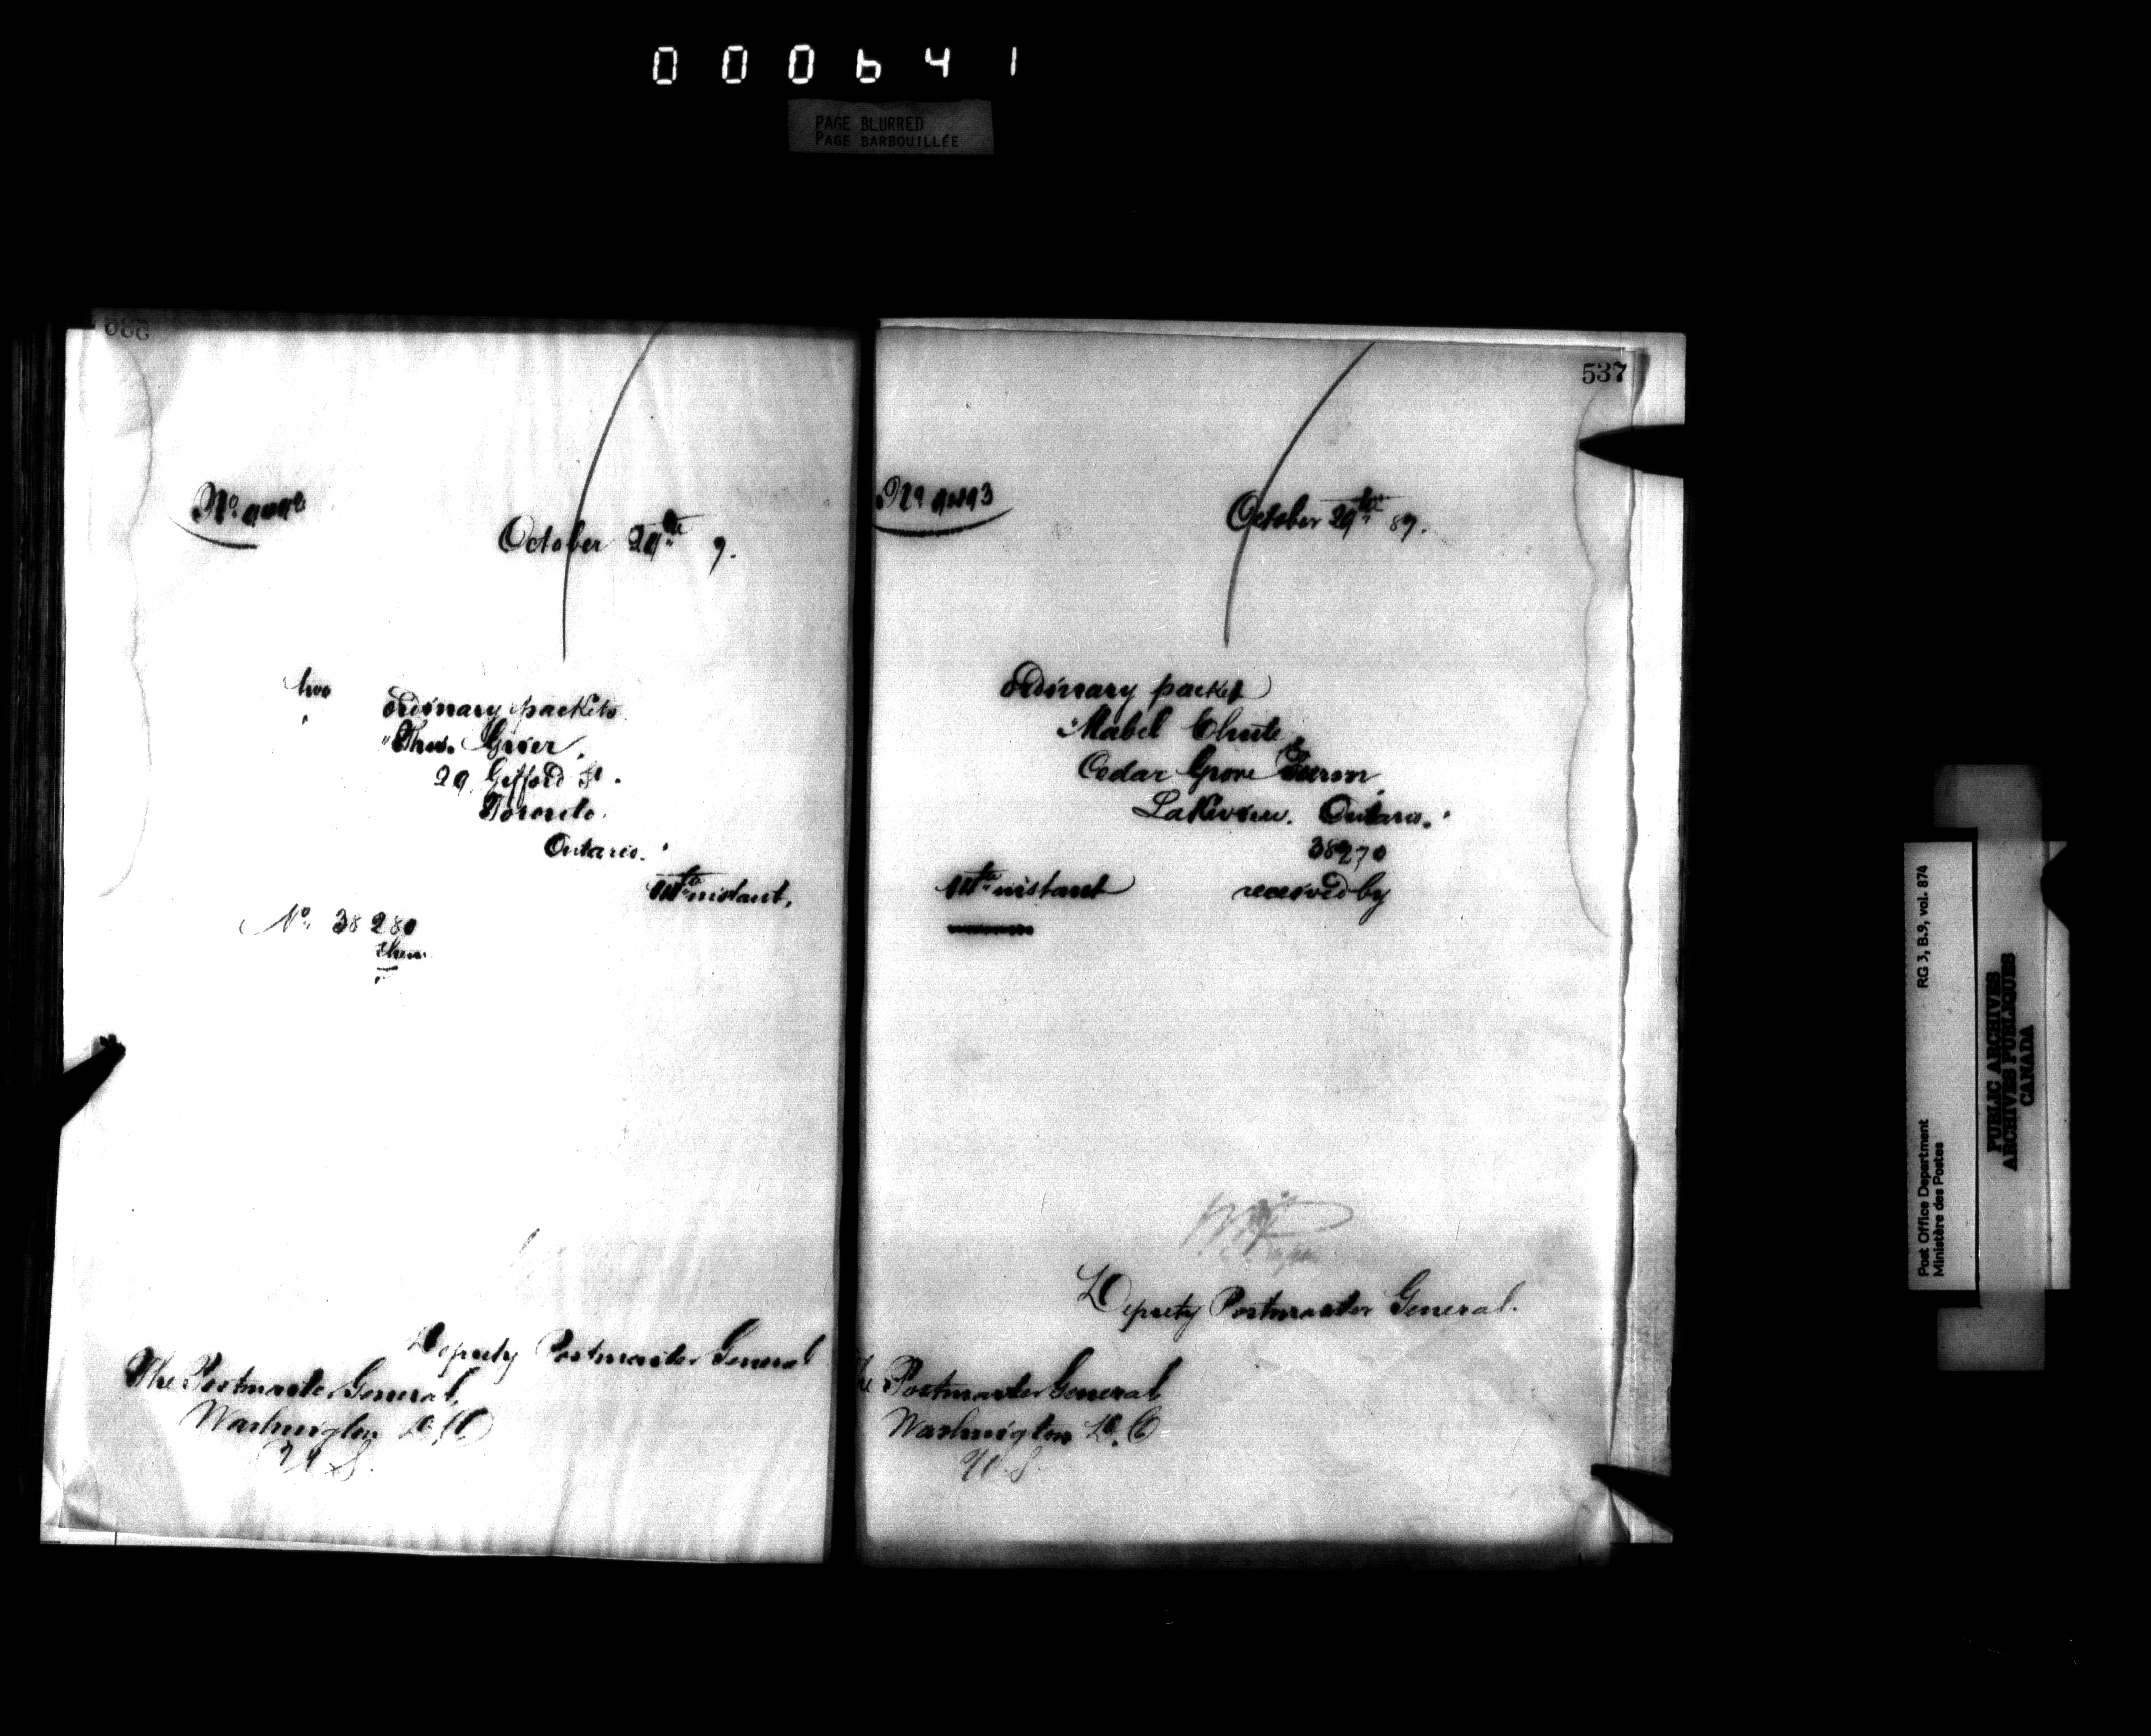 000641
PAGE BLURRED
PAGE BARBOUILLÉE
No.
October 29th 9.
two
ordinary packets
"Thos. Grier,
29 Gifford St.
Toronto.
Ontario."
instant,
No. 38280
them
Deputy Postmaster General
The Postmaster General,
Washington D.C
U.S.
537
No.
October 29th 89.
ordinary packet
"Mabel Chute,
Cedar Grove Farm,
Lakeview. Ontario."
38270
instant received by
Deputy Postmaster General.
The Postmaster General
Washington D.C
U.S.
Post Office Department RG 3, B.9, vol. 874
Ministère des Postes
PUBLIC ARCHIVES
ARCHIVES PUBLIQUES
CANADA